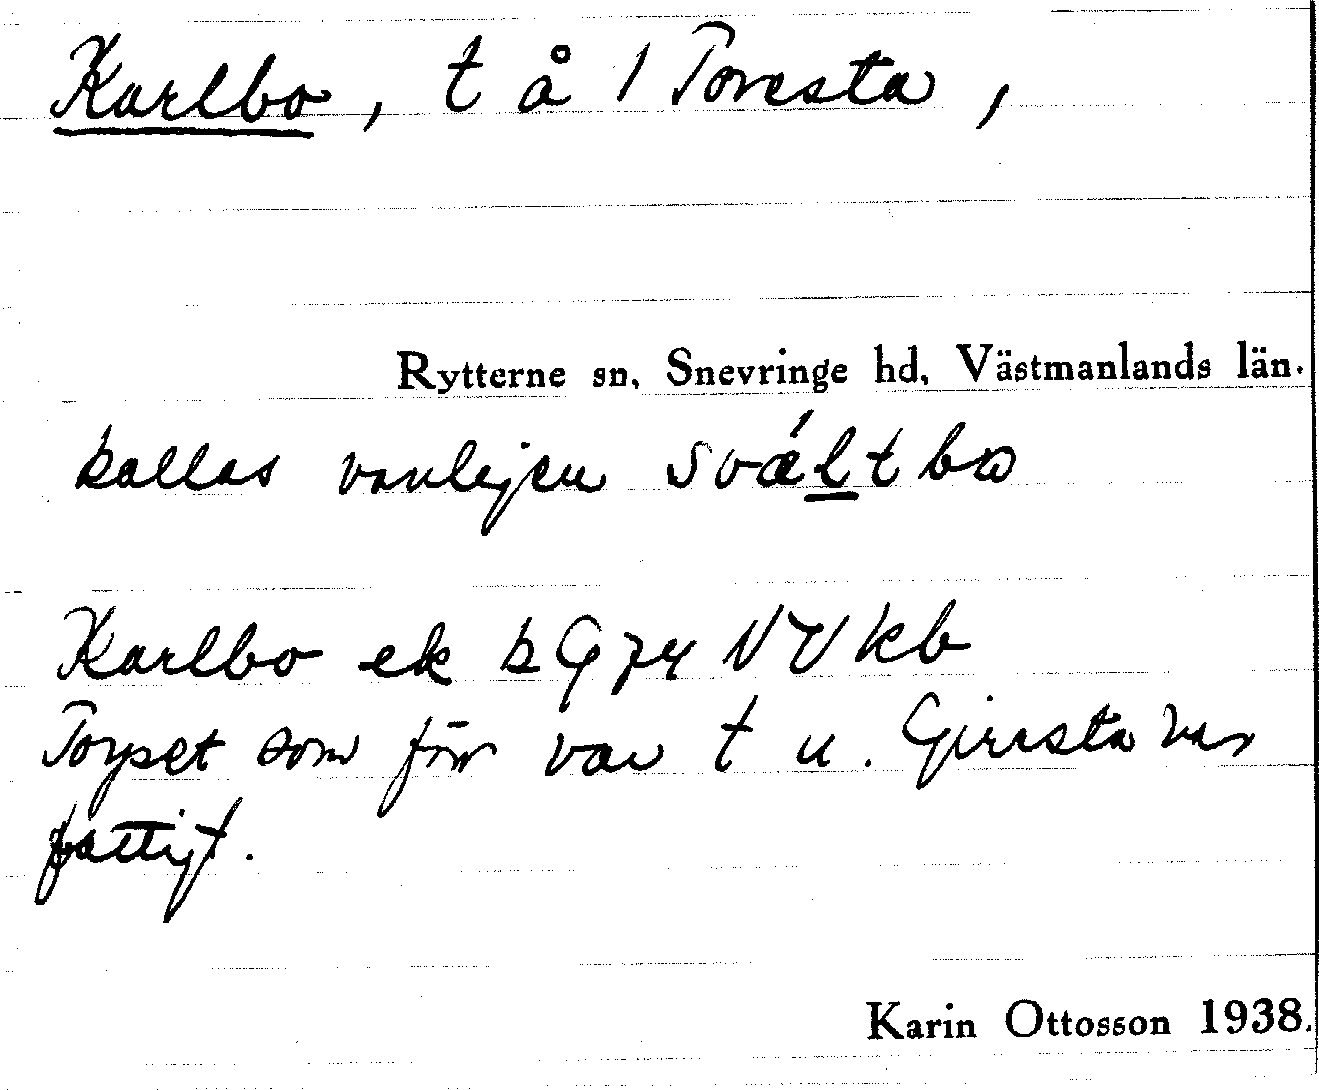 Karlbo, t å 1 Toresta,
Rytterne sn, Snevringe hd, Västmanlands län.
kallas vanligen svǽltbo
Karlbo ek b G 74 NV kb
Torpet som förr var t u. Giresta var
fattigt.
Karin Ottosson 1938.